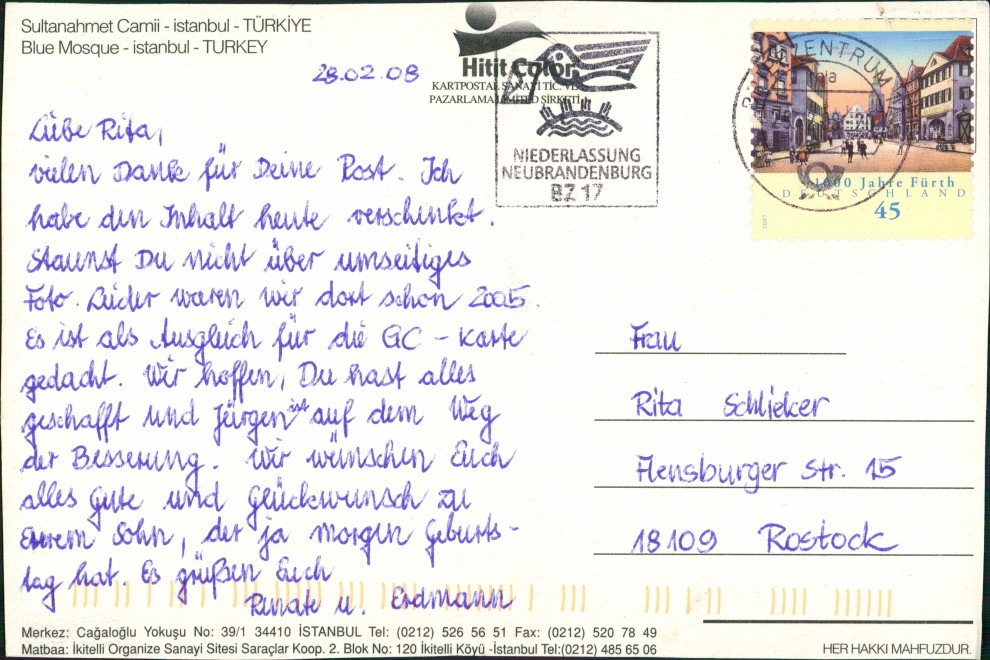 Sultanahmet Camii - istanbul - TÜRKİYE
Blue Mosque - istanbul - TURKEY
Hitit Color
KARTPOSTAL SANAYİ TİC. VE
PAZARLAMA LİMİTED ŞİRKETİ
NIEDERLASSUNG
NEUBRANDENBURG
BZ 17
BRIEFZENTRUM
1000 Jahre Fürth
DEUTSCHLAND
45
2007
28.02.08
Liebe Rita,
vielen Danke für Deine Post. Ich
habe den Inhalt heute verschenkt.
Staunst Du nicht über umseitiges
Foto. Leider waren wir dort schon 2005.
Es ist als Ausgleich für die GC - Karte
gedacht. Wir hoffen, Du hast alles
geschafft und Jürgen ist auf dem Weg
der Besserung. Wir wünschen Euch
alles Gute und Glückwunsch zu
Eurem Sohn, der ja morgen Geburts-
tag hat. Es grüßen Euch
Renate u. Erdmann
Frau
Rita Schlieker
Flensburger Str. 15
18109 Rostock
Merkez: Cağaloğlu Yokuşu No: 39/1 34410 İSTANBUL Tel: (0212) 526 56 51 Fax: (0212) 520 78 49
Matbaa: İkitelli Organize Sanayi Sitesi Saraçlar Koop. 2. Blok No: 120 İkitelli Köyü -İstanbul Tel:(0212) 485 65 06
HER HAKKI MAHFUZDUR.